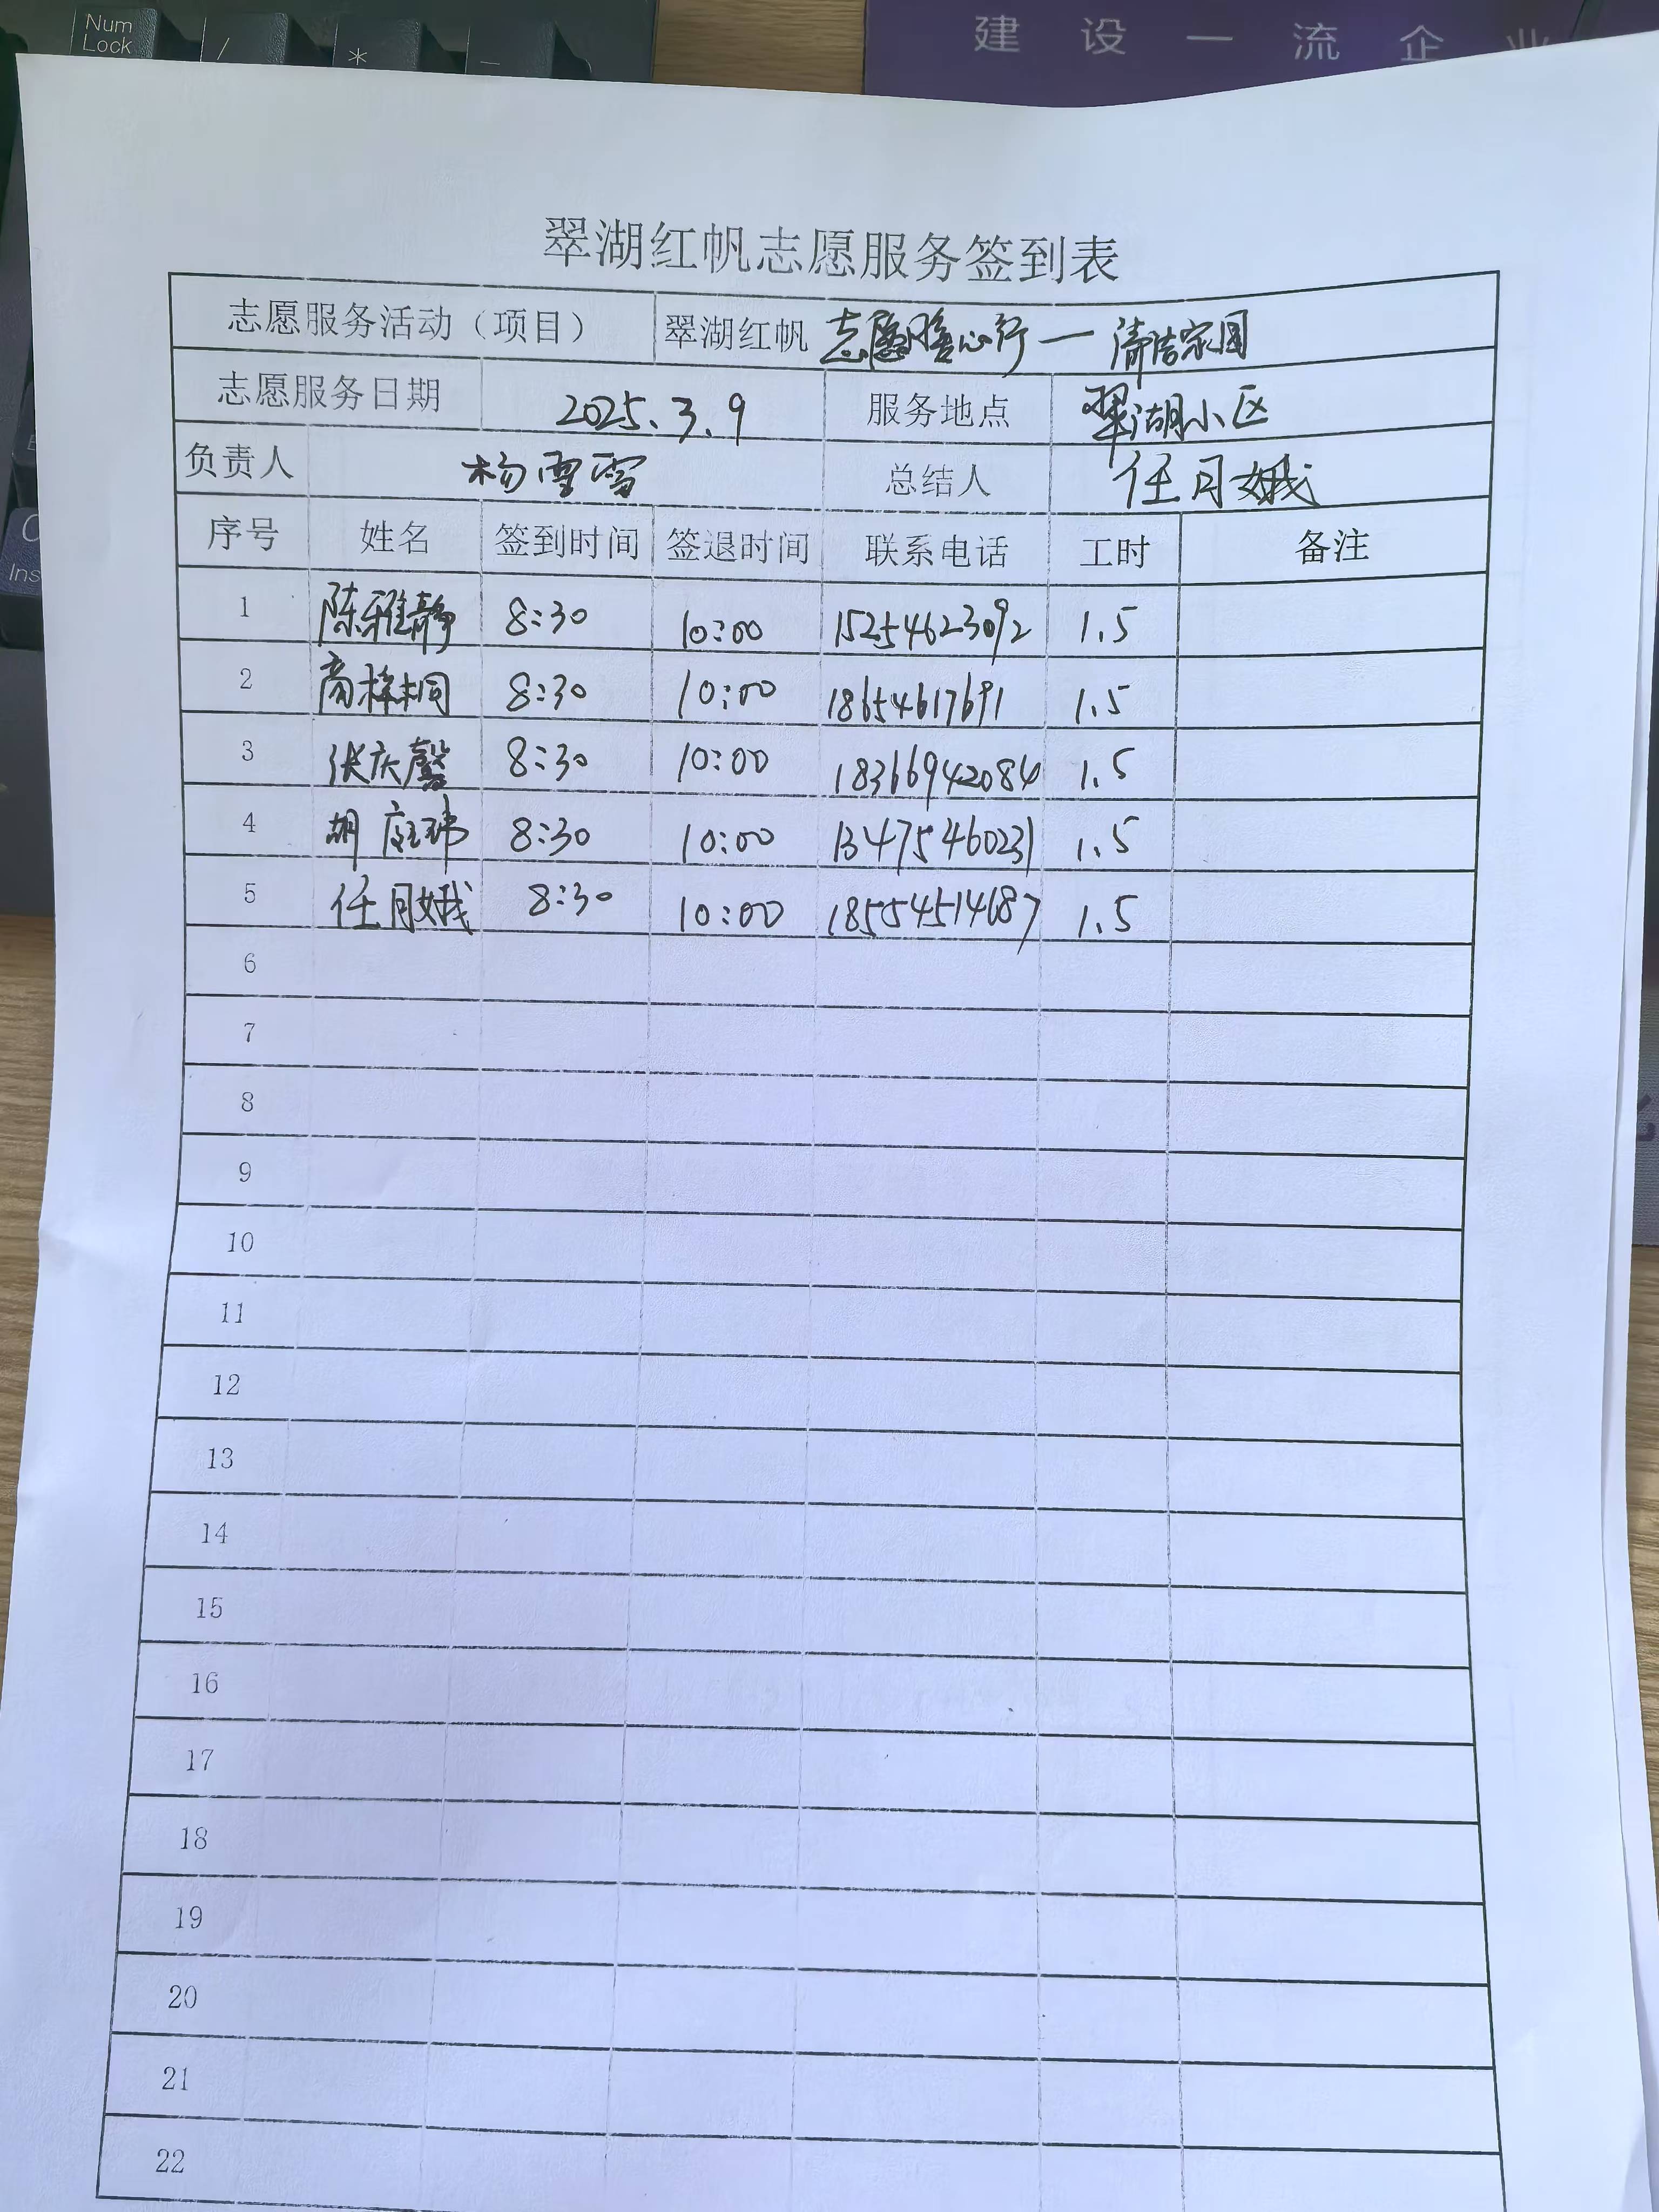 Num
Lock
/
*
—
Ins
建设一流企业
翠湖红帆志愿服务签到表
志愿服务活动（项目） 翠湖红帆 志愿暖心行一清洁家园
志愿服务日期 2025.3.9 服务地点 翠湖小区
负责人 杨雪雪 总结人 任月娥
序号 姓名 签到时间 签退时间 联系电话 工时 备注
1 陈雅静 8:30 10:00 15254623092 1.5
2 商梓桐 8:30 10:00 18654617691 1.5
3 张庆馨 8:30 10:00 18366942084 1.5
4 胡 8:30 10:00 13475460231 1.5
5 任月娥 8:30 10:00 18554514687 1.5
6
7
8
9
10
11
12
13
14
15
16
17
18
19
20
21
22